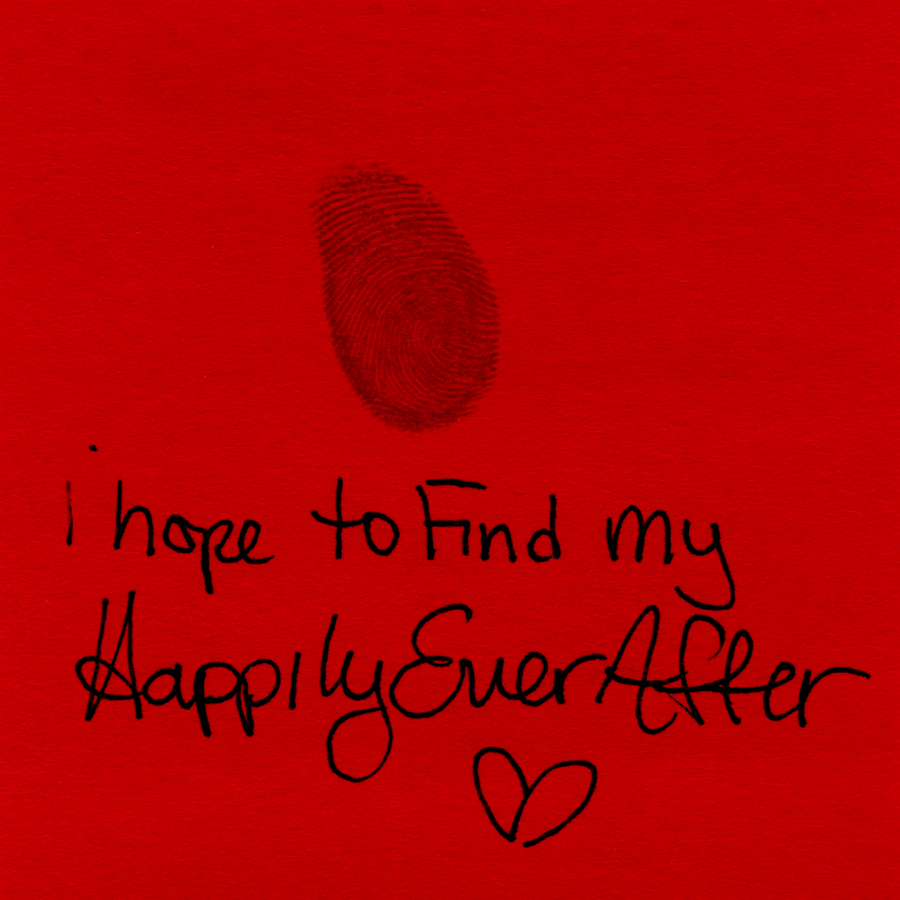 i hope to Find my
Happily Ever After